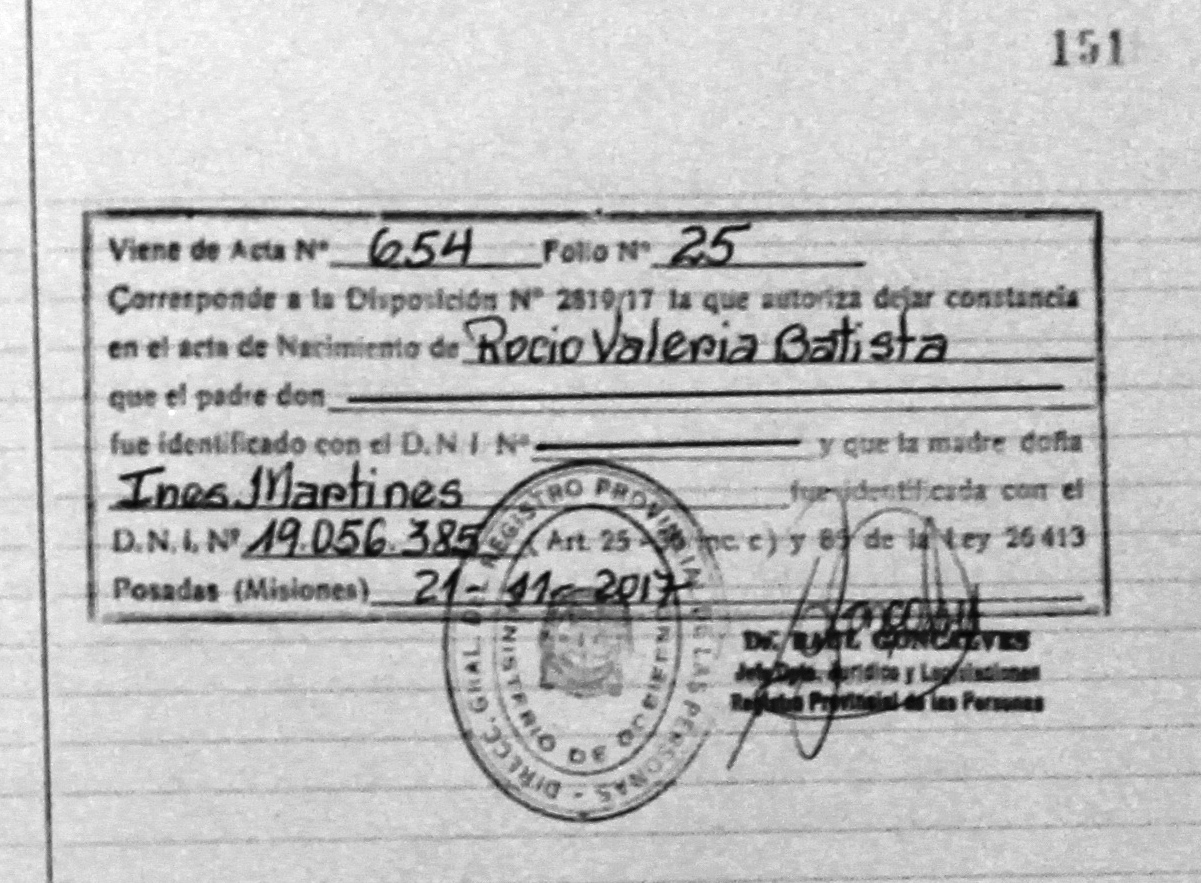 151
Viene de Acta Nº 654 Folio Nº 25
Corresponde a la Disposición Nº 2819/17 la que autoriza dejar constancia
en el acta de Nacimiento de Rocio Valeria Batista
que el padre don
fue identificado con el D.N.I. Nº y que la madre doña
Ines Martines fue identificada con el
D.N.I. Nº 19.056.385 (Art. 25 - Inc. c) y 85 de la Ley 26413
Posadas (Misiones) 21-11-2017
DIRECC. GRAL. DEL REGISTRO PROVINCIAL DE LAS PERSONAS
MINISTERIO DE GOBIERNO
Dr. RAUL GONCALVES
Jefe Dpto. Jurídico y Legislaciones
Registro Provincial de las Personas